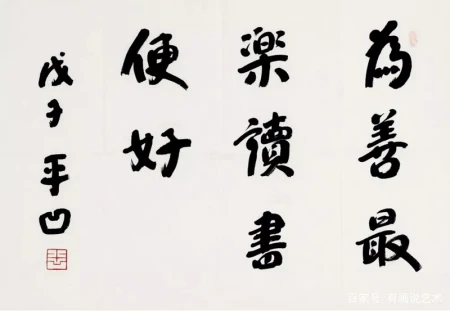 為善最
楽讀書
便好
戊子 平凹
百家号/有画说艺术